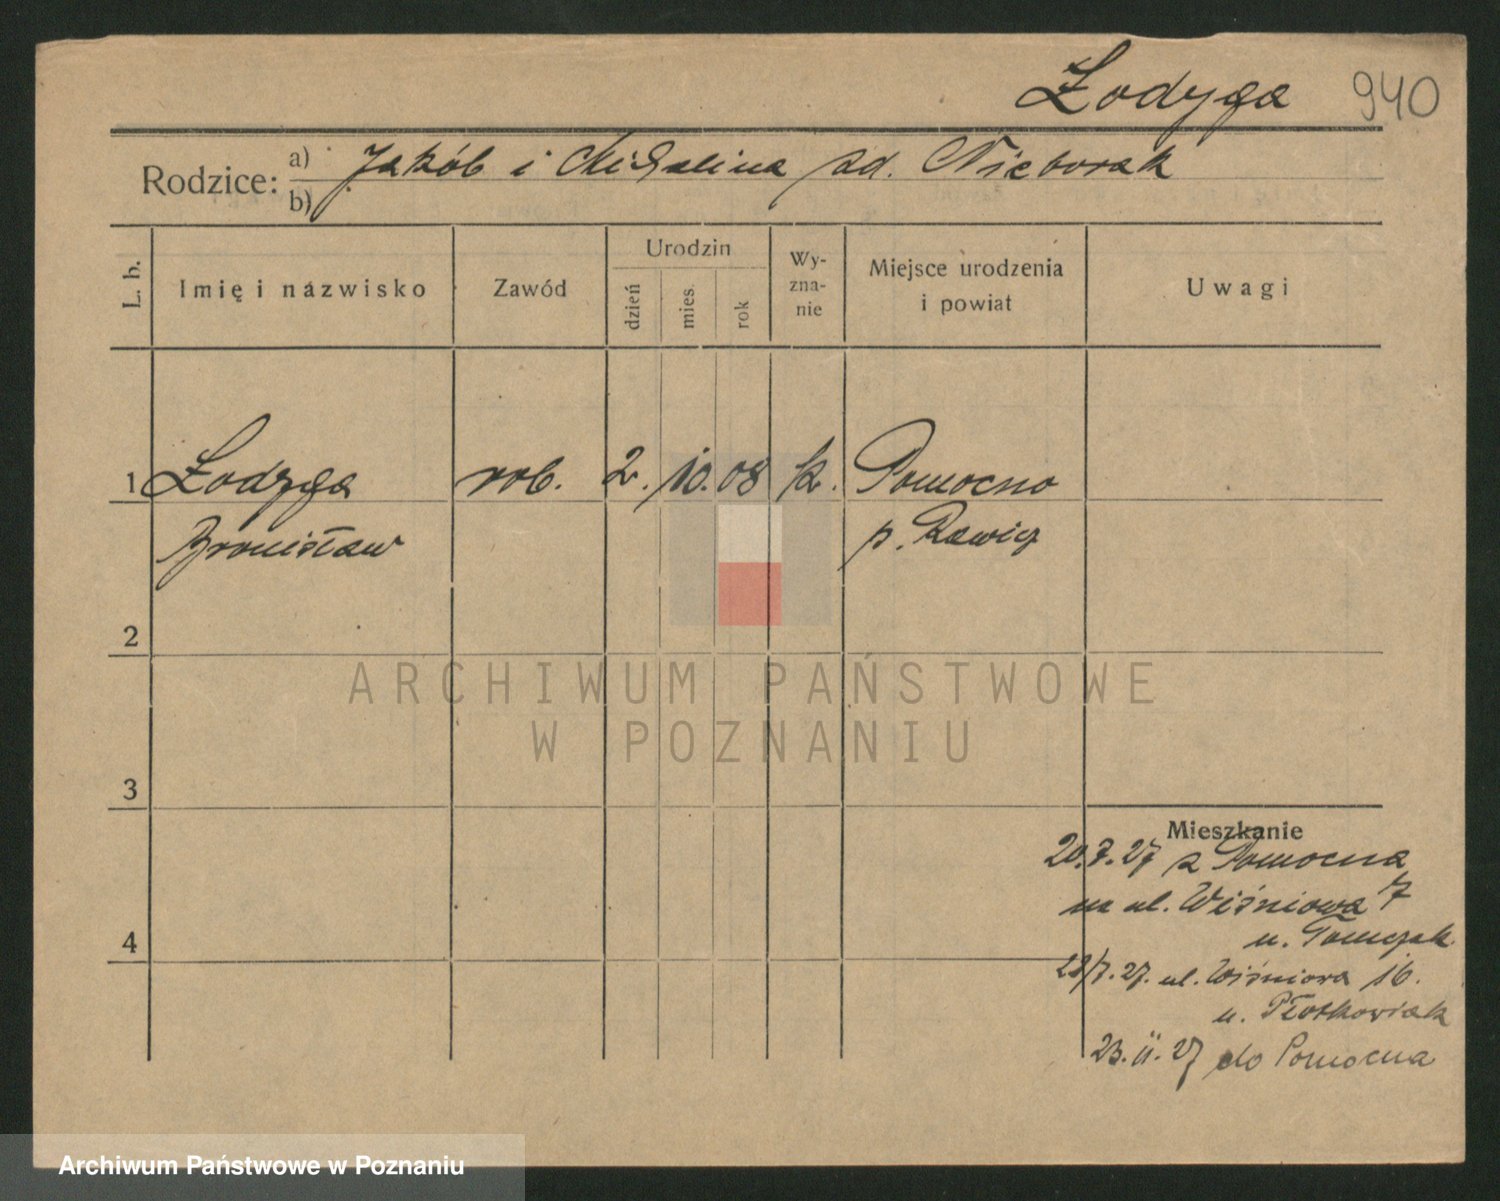 Łodyga 940
Rodzice: a) Jakób i Michalina zd. Nieborak
b)
L. b. Imię i nazwisko Zawód Urodzin dzień mies. rok Wy-zna-nie Miejsce urodzenia i powiat Uwagi
1 Łodyga rob. 2. 10. 08 k. Pomocno
Bronisław p. Rawicz
2
3
4
Mieszkanie
20.7.27 z Pomocna
na ul. Wiśniowa 7
u. Tomczak.
28/7.27. ul. Wiśniowa 16.
u. Płotkowiak
23.11.27 do Pomocna
ARCHIWUM PAŃSTWOWE
W POZNANIU
Archiwum Państwowe w Poznaniu